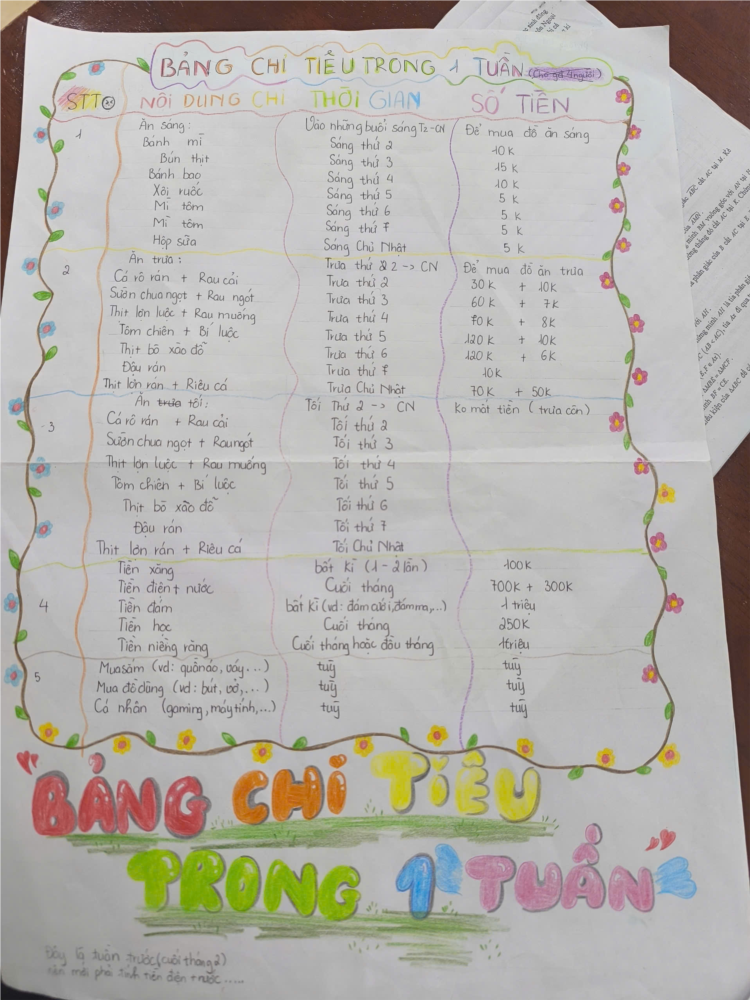 BẢNG CHI TIÊU TRONG 1 TUẦN
STT NỘI DUNG CHI THỜI GIAN SỐ TIỀN
1 Ăn sáng: Vào những buổi sáng T2-CN Để mua đồ ăn sáng
Bánh mì Sáng thứ 2 10K
Bún thịt Sáng thứ 3 15K
Bánh bao Sáng thứ 4 10K
Xôi ruốc Sáng thứ 5 5K
Mì tôm Sáng thứ 6 5K
Mì tôm Sáng thứ 7 5K
Hộp sữa Sáng Chủ Nhật 5K
2 Ăn trưa: Trưa thứ 2 -> CN Để mua đồ ăn trưa
Cá rô rán + Rau cải Trưa thứ 2 30K + 10K
Sườn chua ngọt + Rau ngót Trưa thứ 3 60K + 7K
Thịt lợn luộc + Rau muống Trưa thứ 4 70K + 8K
Tôm chiên + Bí luộc Trưa thứ 5 120K + 10K
Thịt bò xào đỗ Trưa thứ 6 120K + 6K
Đậu rán Trưa thứ 7 10K
Thịt lợn rán + Riêu cá Trưa Chủ Nhật 70K + 50K
3 Ăn trưa tối: Tối Thứ 2 -> CN Ko mất tiền (trưa còn)
Cá rô rán + Rau cải Tối thứ 2
Sườn chua ngọt + Rau ngót Tối thứ 3
Thịt lợn luộc + Rau muống Tối thứ 4
Tôm chiên + Bí luộc Tối thứ 5
Thịt bò xào đỗ Tối thứ 6
Đậu rán Tối thứ 7
Thịt lợn rán + Riêu cá Tối Chủ Nhật
Tiền xăng bất kì (1-2 lần) 100K
Tiền điện + nước Cuối tháng 700K + 300K
4 Tiền đám bất kì (vd: đám cưới, đám ma,...) 1 triệu
Tiền học Cuối tháng 250K
Tiền niềng răng Cuối tháng hoặc đầu tháng 1triệu
5 Mua sắm (vd: quần áo, váy...) tuỳ tuỳ
Mua đồ dùng (vd: bút, vở,...) tuỳ tuỳ
Cá nhân (gaming, máy tính,...) tuỳ tuỳ
"BẢNG CHI TIÊU
TRONG 1 TUẦN"
Đây là tuần trước (cuối tháng 2)
nên mới phải tính tiền điện + nước.....